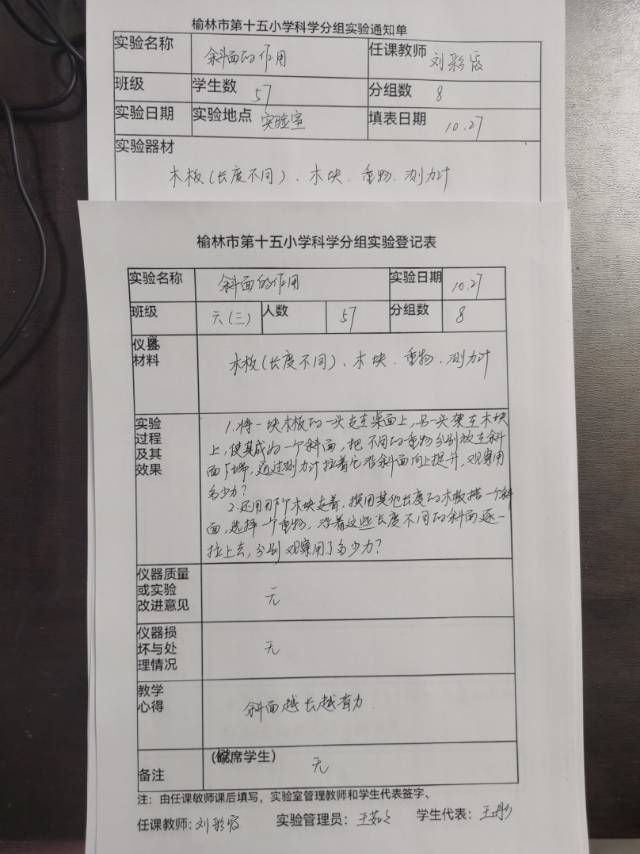 榆林市第十五小学科学分组实验通知单
实验名称 斜面的作用 任课教师 刘彩霞
班级 学生数 57 分组数 8
实验日期 实验地点 实验室 填表日期 10.27
实验器材
木板(长度不同)、木块、重物、测力计
榆林市第十五小学科学分组实验登记表
实验名称 斜面的作用 实验日期 10.27
班级 六(三) 人数 57 分组数 8
仪器
材料 木板(长度不同)、木块、重物、测力计
实验
过程
及其
效果
1.将一块木板的一头支在桌面上,另一头架在木块
上,使其成为一个斜面,把不同的重物分别放在斜
面下端,通过测力计拉着它沿斜面向上提升,观察用
多少力?
2.还用那个木块支着,换用其他长度的木板搭一个斜
面,选择一个重物,沿着这些长度不同的斜面逐一
拉上去,分别观察用了多少力?
仪器质量
或实验
改进意见
无
仪器损
坏与处
理情况
无
教学
心得
斜面越长越省力
备注 席学生) 无
注:由任课教师课后填写,实验室管理教师和学生代表签字。
任课教师:刘彩霞 实验管理员:王 学生代表:王